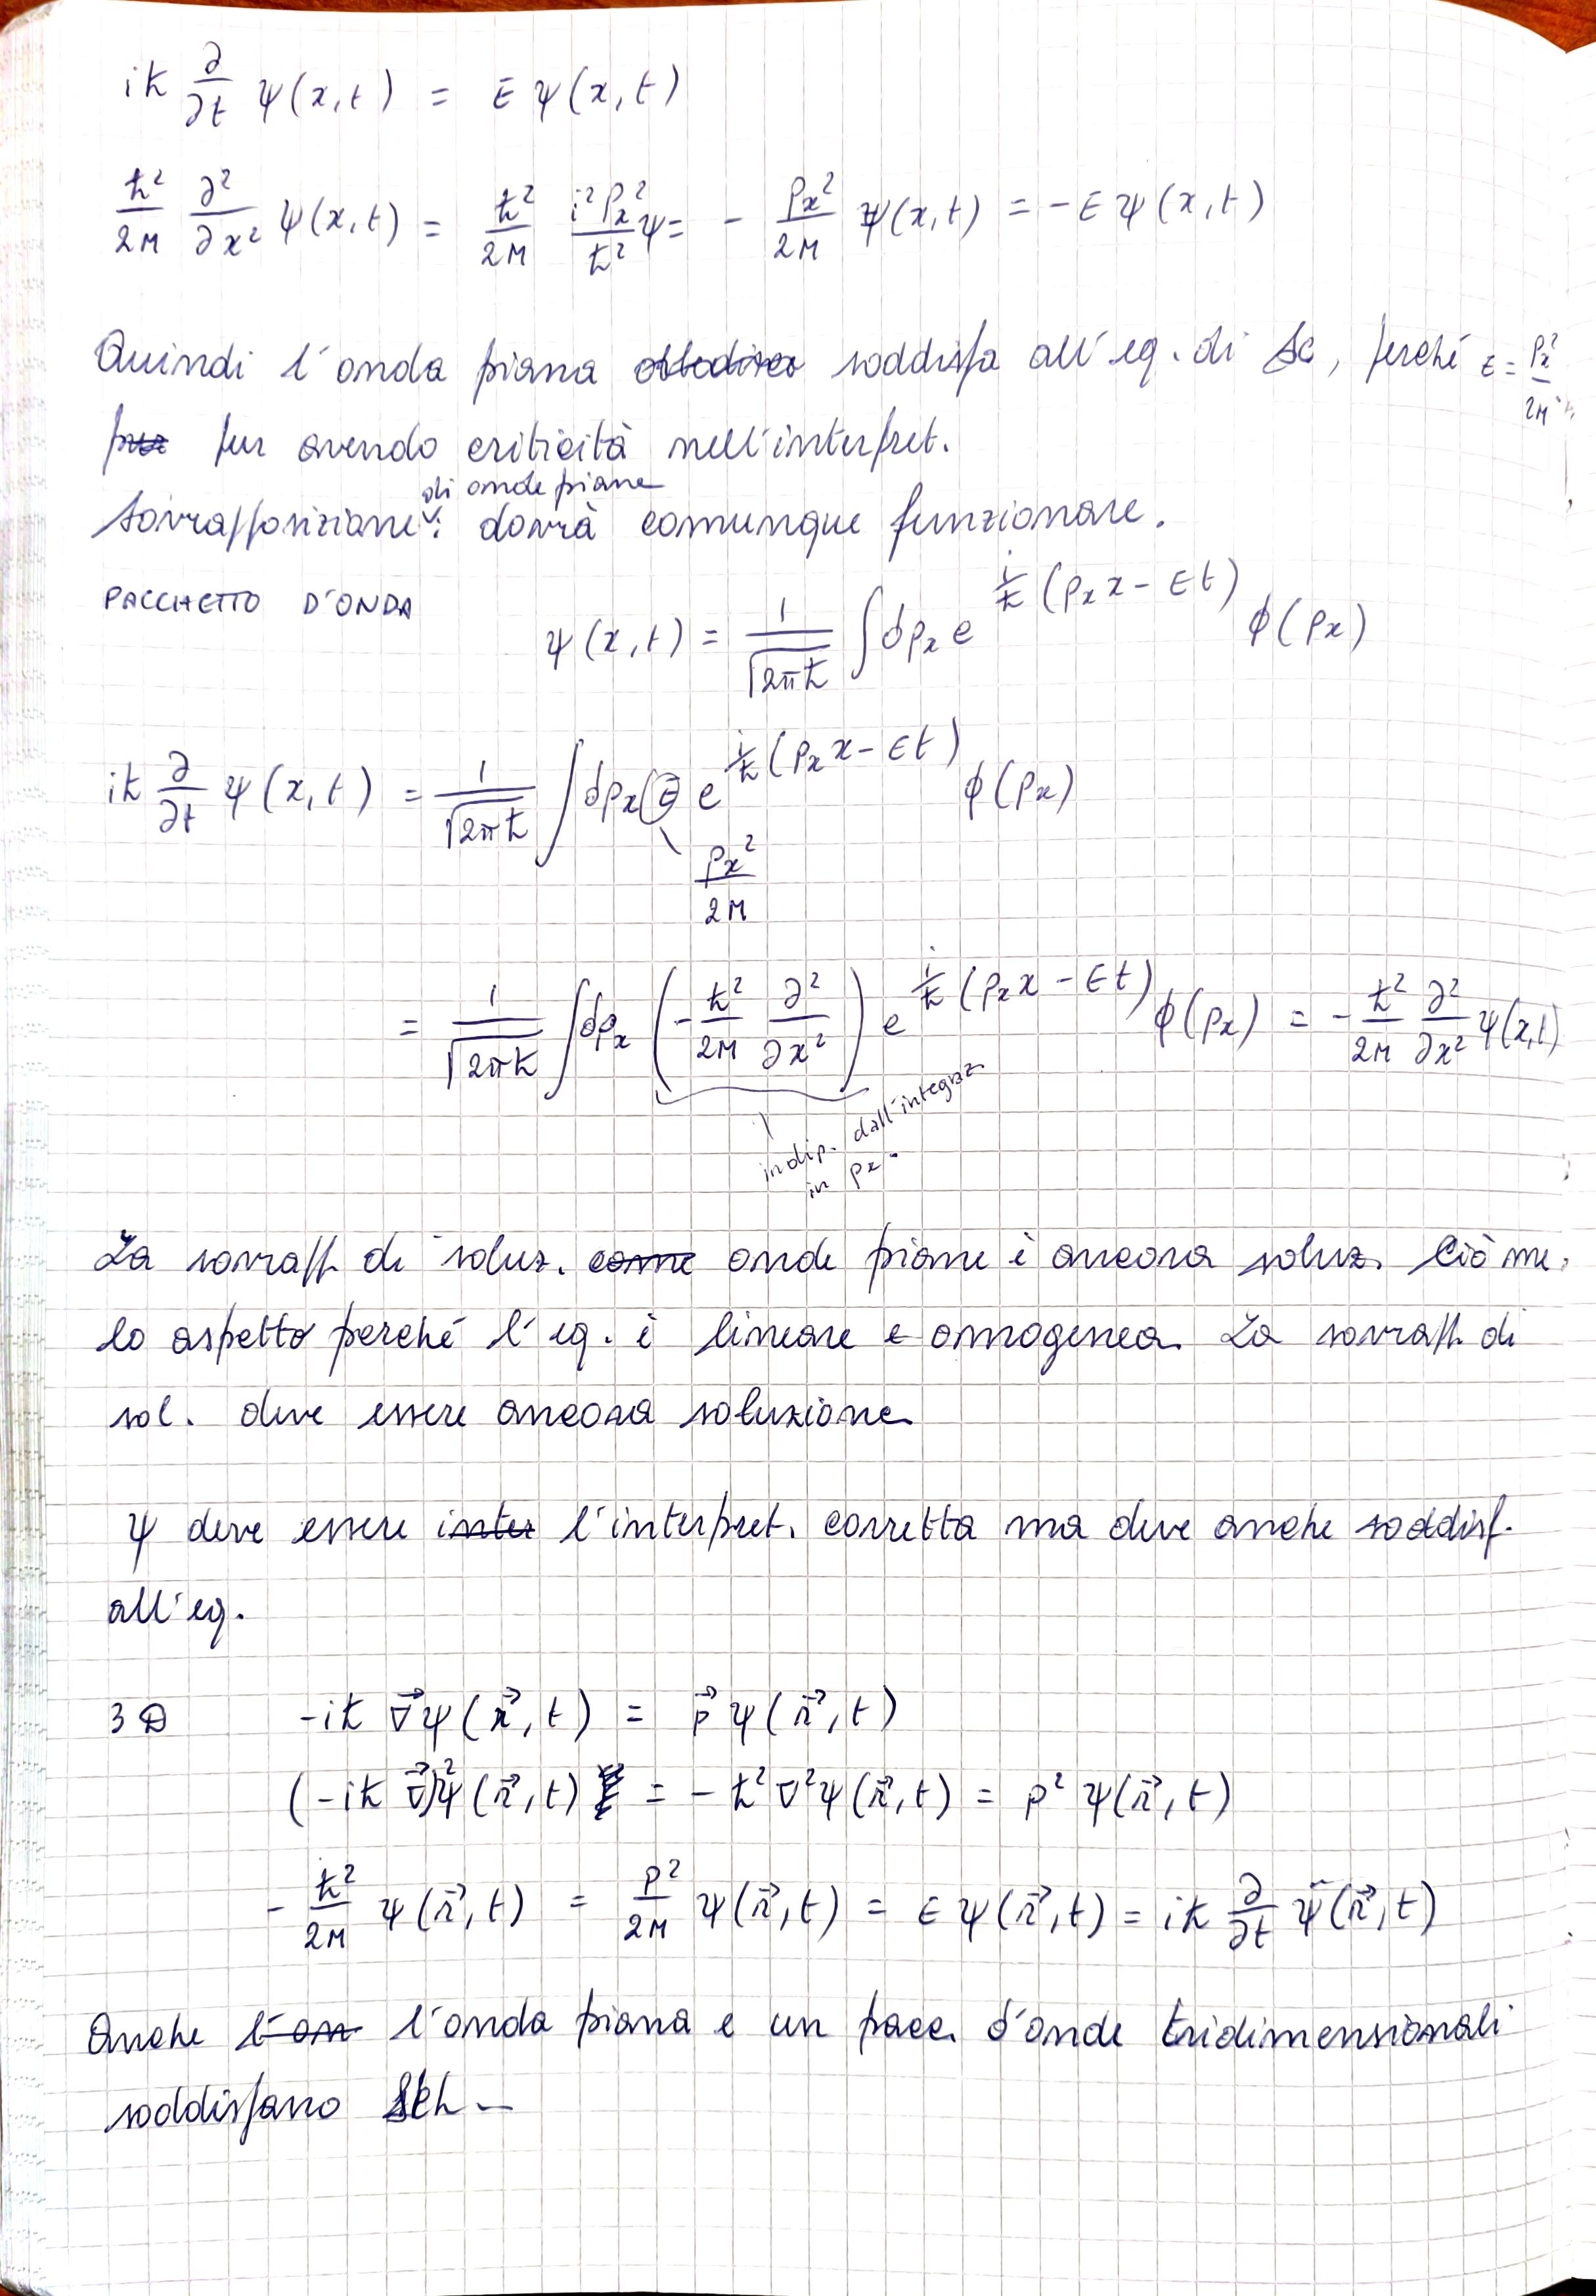 iħ ∂/∂t ψ(x,t) = E ψ(x,t)
ħ²/2M ∂²/∂x² ψ(x,t) = ħ²/2M i²Px²/ħ² ψ = - Px²/2M ψ(x,t) = -E ψ(x,t)
Quindi l'onda piana soddisfa all'eq. di Sc, perché E = Px²/2M
pur avendo criticità nell'interpret.
di onde piane
Sovrapposizione: dovrà comunque funzionare.
PACCHETTO D'ONDA
ψ(x,t) = 1/√2πħ ∫dpx e^{i/ħ (px x - Et)} ϕ(px)
iħ ∂/∂t ψ(x,t) = 1/√2πħ ∫dpx E e^{i/ħ (px x - Et)} ϕ(px)
px²/2M
= 1/√2πħ ∫dpx (-ħ²/2M ∂²/∂x²) e^{i/ħ (px x - Et)} ϕ(px) = -ħ²/2M ∂²/∂x² ψ(x,t)
indip. dall'integraz
in px.
La sovrapp. di soluz. come onde piane è ancora soluz. Ciò me
lo aspetto perché l'eq. è lineare e omogenea. La sovrapp. di
sol. deve essere ancora soluzione
ψ deve essere inter l'interpret. corretta ma deve anche soddisf.
all'eq.
3D -iħ ∇⃗ψ(r⃗,t) = p⃗ ψ(r⃗,t)
(-iħ ∇⃗)²ψ(r⃗,t) = -ħ²∇²ψ(r⃗,t) = p² ψ(r⃗,t)
-ħ²/2M ψ(r⃗,t) = P²/2M ψ(r⃗,t) = E ψ(r⃗,t) = iħ ∂/∂t ψ(r⃗,t)
Anche l'on l'onda piana e un pacc. d'onde tridimensionali
soddisfano Sch-